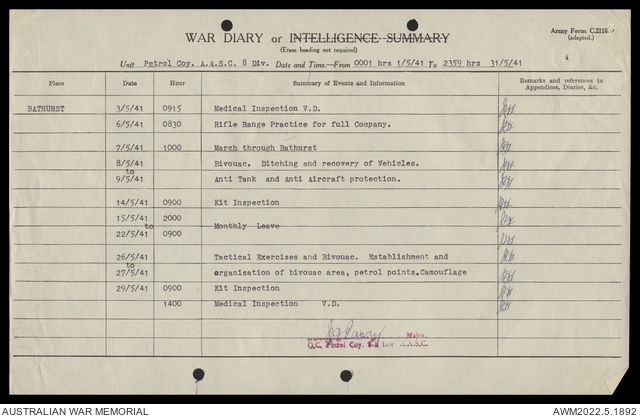 WAR DIARY or INTELLIGENCE SUMMARY
Army Form C.2118.
(adapted.)
(Erase heading not required)
Unit Petrol Coy. A.A.S.C. 8 Div. Date and Time—From 0001 hrs 1/5/41 To 2359 hrs 31/5/41
Place Date Hour Summary of Events and Information Remarks and references to Appendices, Diaries, &c.
BATHURST 3/5/41 0915 Medical Inspection V.D.
6/5/41 0830 Rifle Range Practice for full Company.
7/5/41 1000 March through Bathurst
8/5/41 Bivouac. Ditching and recovery of Vehicles.
to
9/5/41 Anti Tank and Anti Aircraft protection.
14/5/41 0900 Kit Inspection
15/5/41 2000
to Monthly Leave
22/5/41 0900
26/5/41 Tactical Exercises and Bivouac. Establishment and
to
27/5/41 organisation of bivouac area, petrol points.Camouflage
29/5/41 0900 Kit Inspection
1400 Medical Inspection V.D.
Major.
O.C. Petrol Coy. 8th Div A.A.S.C.
AUSTRALIAN WAR MEMORIAL
AWM2022.5.1892